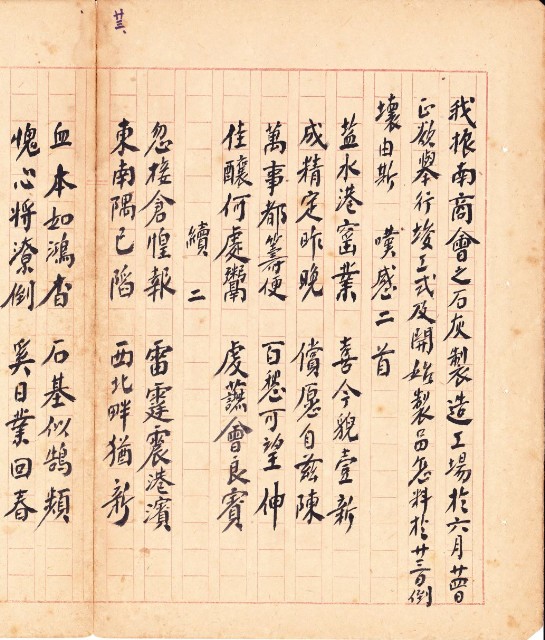 廿三
我根南商會之石灰製造工場於六月廿四日
正欲舉行竣工式及開始製品怎料於廿三日倒
壞由斯 嘆感二首
盐水港窑業 喜今貌壹新
成精定昨晚 償愿自茲陳
萬事都籌便 百愁可望伸
佳釀何處鬻 虔蘸會良賓
續 二
忽接倉惶報 雷霆震港濱
東南隅已陷 西北畔猶新
血本如鴻杳 石基似鵠頻
愧心將潦倒 奚日業回春